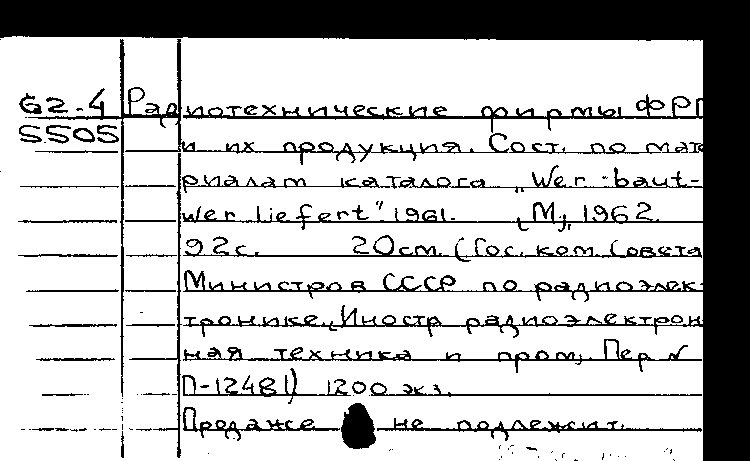 62-4 Радиотехнические фирмы ФРГ
5505 и их продукция. Сост. по мате
риалам каталога „Wer baut-
wer liefert". 1961. [М], 1962.
92с. 20см. (Гос. ком. Совета
Министров СССР по радиоэлек-
тронике. Иностр радиоэлектрон
ная техника и пром. Пер №
П-12481) 1200 экз.
Продаже не подлежит.